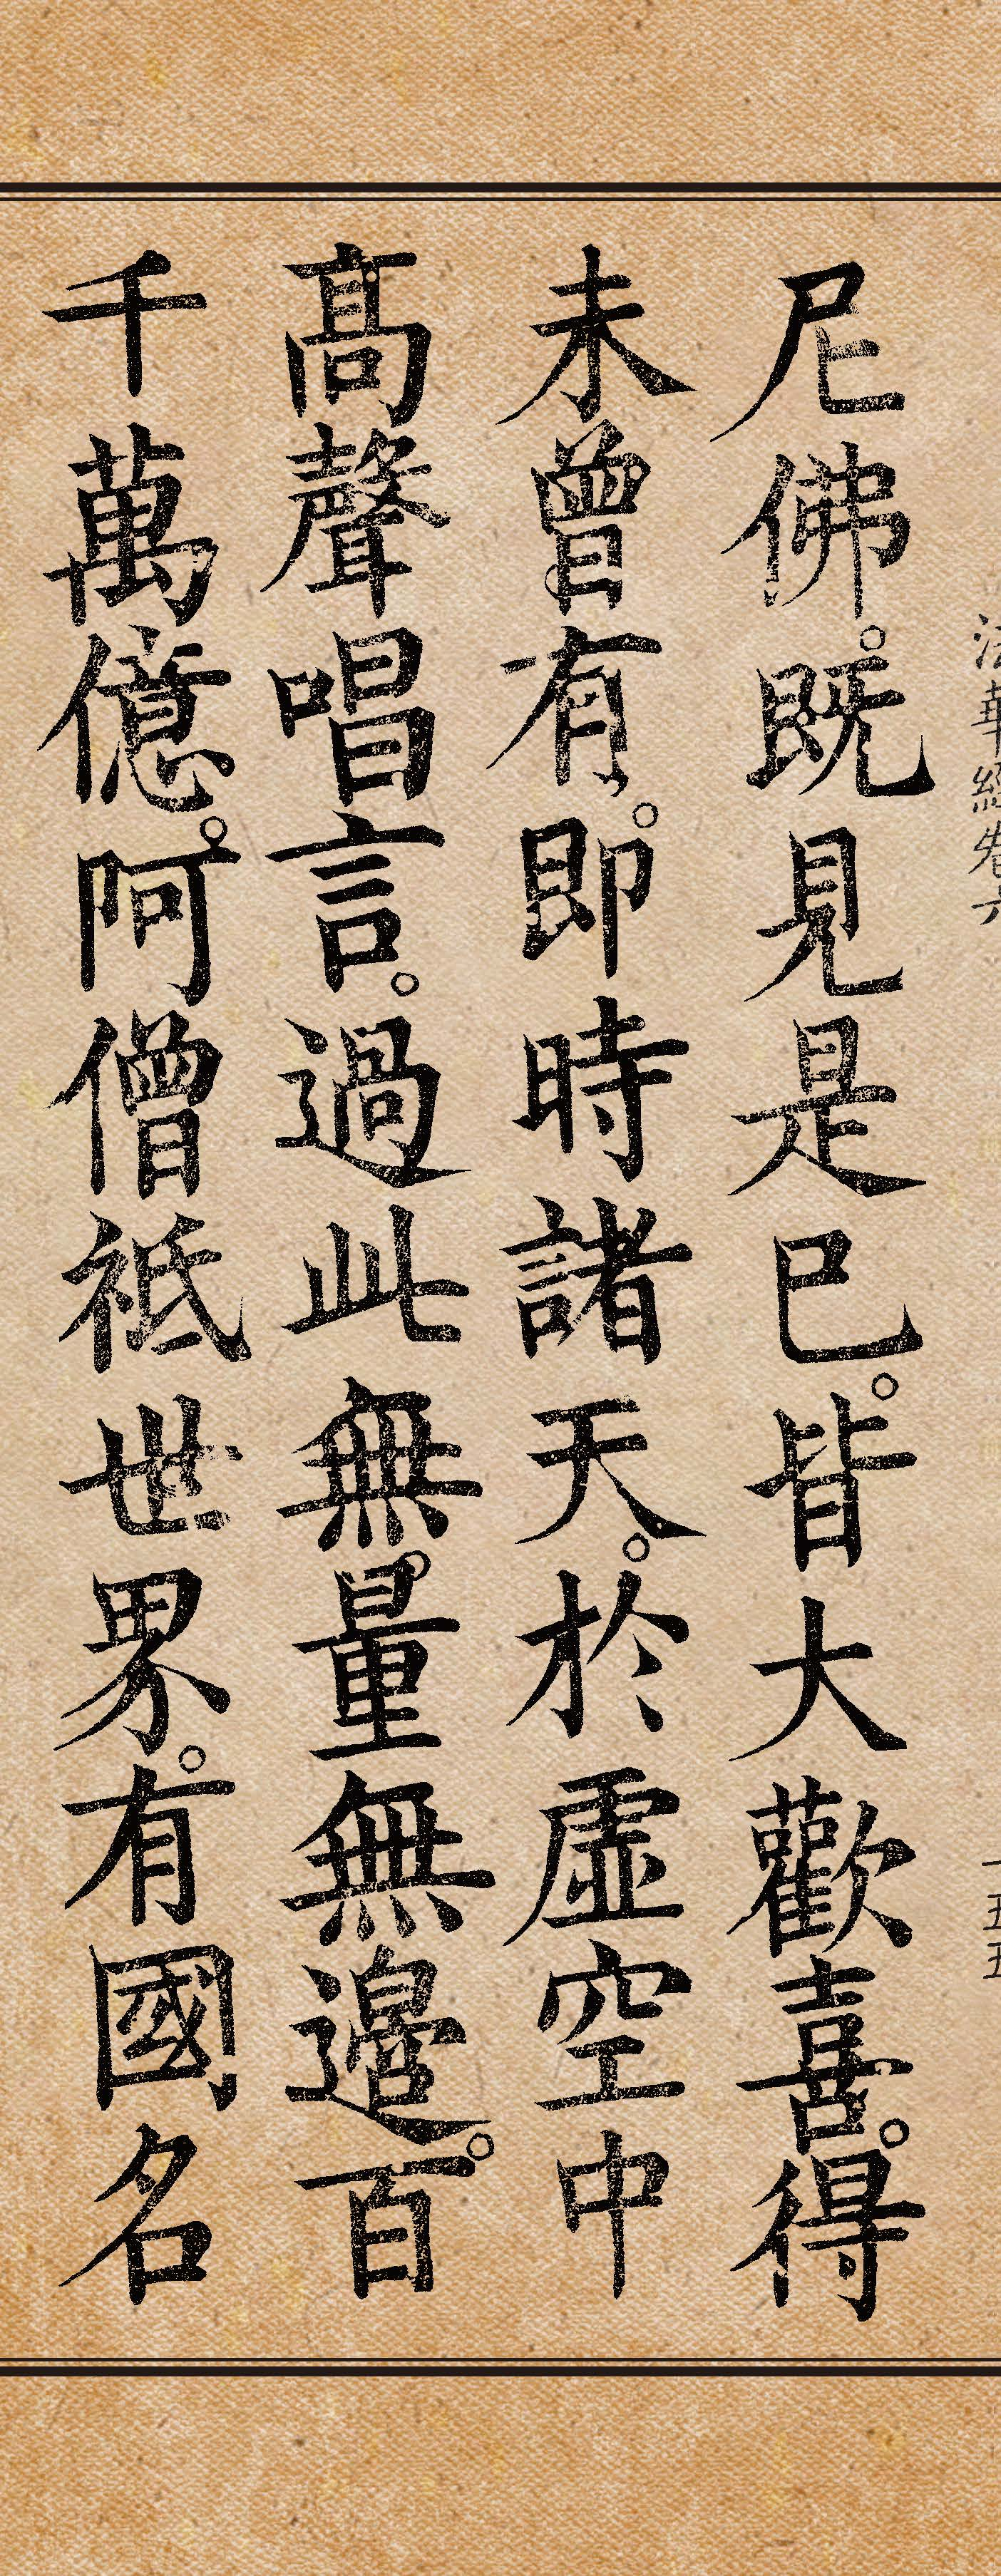 法華經卷六
一五五
尼佛。既見是已。皆大歡喜。得
未曾有。即時諸天。於虛空中
高聲唱言。過此無量。無邊。百
千萬億。阿僧祇世界。有國名